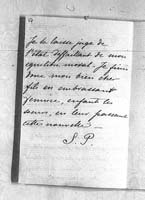 Je te laisse juge de
l'état défaillant de mon
équilibre moral. Je finis
donc mon bien cher
fils en embrassant
femme, enfant et
sœurs, en leur passant
cette nouvelle —
S. P